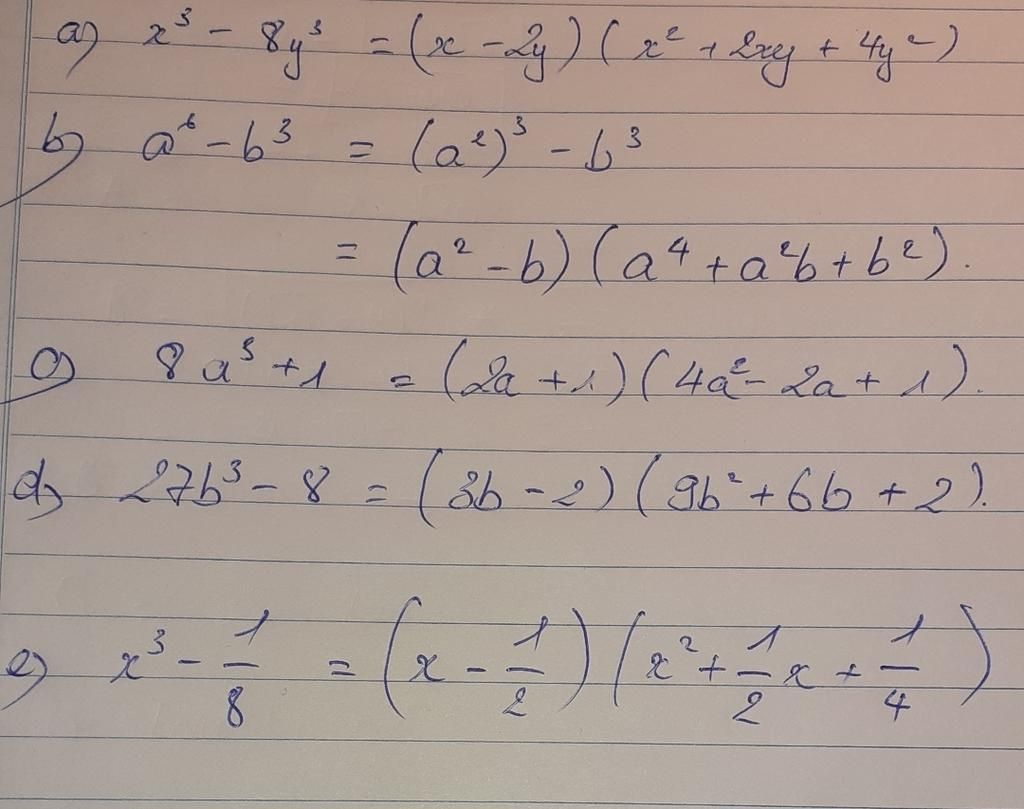 a) x³ - 8y³ = (x - 2y) (x² + 2xy + 4y²)
b) a⁶ - b³ = (a²)³ - b³
= (a² - b) (a⁴ + a²b + b²).
c) 8a³ + 1 = (2a + 1) (4a² - 2a + 1).
d) 27b³ - 8 = (3b - 2) (9b² + 6b + 2).
e) x³ - 1/8 = (x - 1/2) (x² + 1/2 x + 1/4)